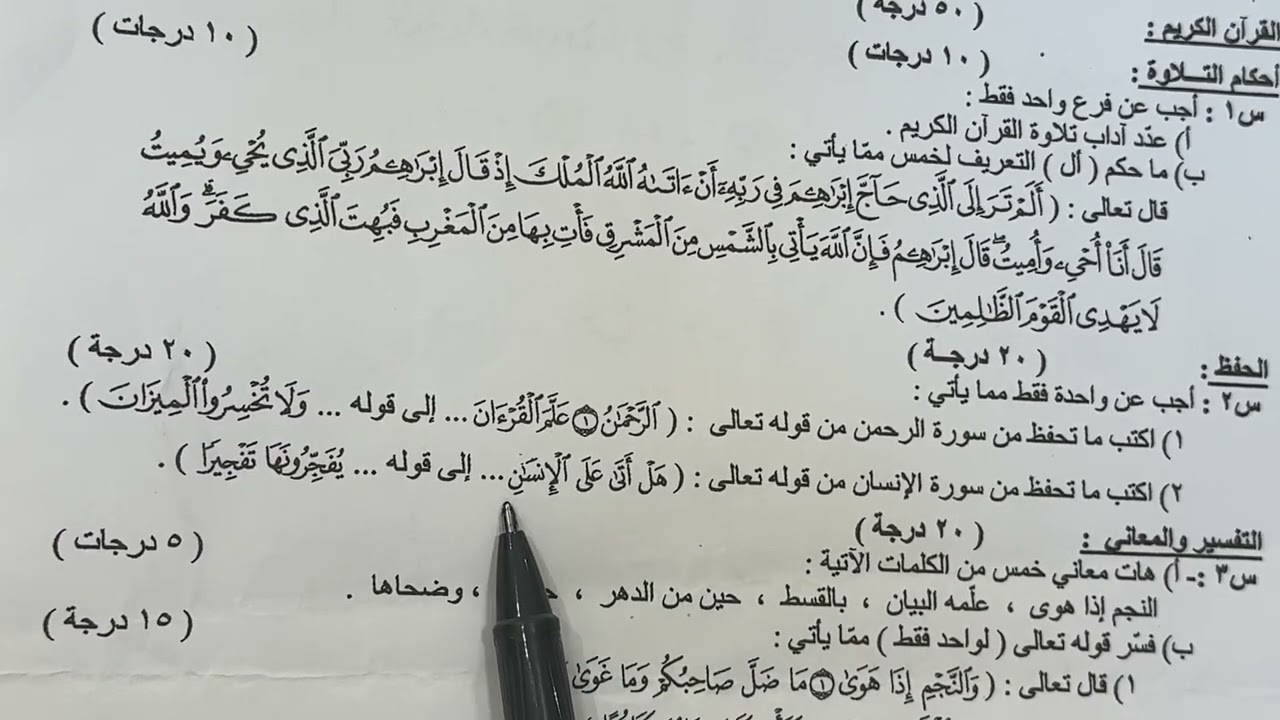 ( ٥٠ درجة )
القرآن الكريم :
( ١٠ درجات )
أحكام التـــلاوة :
( ١٠ درجات )
س١ : أجب عن فرع واحد فقط :
أ) عدّد آداب تلاوة القرآن الكريم .
ب) ما حكم ( أل ) التعريف لخمس ممّا يأتي :
قال تعالى : ( أَلَمْ تَرَ إِلَى ٱلَّذِى حَآجَّ إِبْرَٰهِۦمَ فِى رَبِّهِۦٓ أَنْ ءَاتَىٰهُ ٱللَّهُ ٱلْمُلْكَ إِذْ قَالَ إِبْرَٰهِۦمُ رَبِّىَ ٱلَّذِى يُحْىِۦ وَيُمِيتُ
قَالَ أَنَا۠ أُحْىِۦ وَأُمِيتُ ۖ قَالَ إِبْرَٰهِۦمُ فَإِنَّ ٱللَّهَ يَأْتِى بِٱلشَّمْسِ مِنَ ٱلْمَشْرِقِ فَأْتِ بِهَا مِنَ ٱلْمَغْرِبِ فَبُهِتَ ٱلَّذِى كَفَرَ ۗ وَٱللَّهُ
لَا يَهْدِى ٱلْقَوْمَ ٱلظَّٰلِمِينَ ) .
الحفظ : ( ٢٠ درجــة )
س٢ : أجب عن واحدة فقط مما يأتي : ( ٢٠ درجة )
١) اكتب ما تحفظ من سورة الرحمن من قوله تعالى : ( ٱلرَّحْمَٰنُ ١ عَلَّمَ ٱلْقُرْءَانَ ... إلى قوله ... وَلَا تُخْسِرُوا۟ ٱلْمِيزَانَ ) .
٢) اكتب ما تحفظ من سورة الإنسان من قوله تعالى : ( هَلْ أَتَىٰ عَلَى ٱلْإِنسَٰنِ ... إلى قوله ... يُفَجِّرُونَهَا تَفْجِيرًا ) .
التفسير والمعاني : ( ٢٠ درجة )
س٣ :ـ أ) هات معاني خمس من الكلمات الآتية : ( ٥ درجات )
النجم إذا هوى ، علّمه البيان ، بالقسط ، حين من الدهر ، ، وضحاها .
ب) فسّر قوله تعالى ( لواحد فقط ) ممّا يأتي : ( ١٥ درجة )
١) قال تعالى : ( وَٱلنَّجْمِ إِذَا هَوَىٰ ١ مَا ضَلَّ صَاحِبُكُمْ وَمَا غَوَىٰ